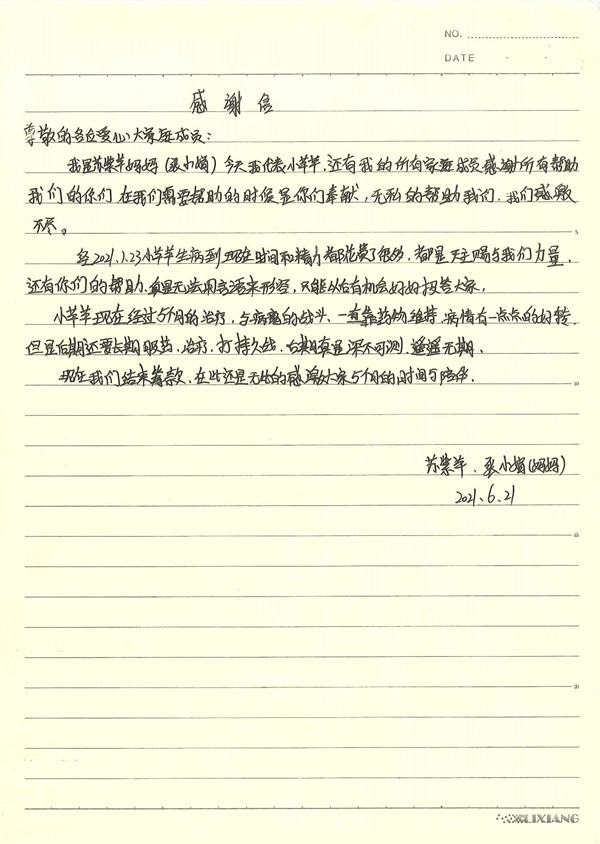 NO.
DATE
感谢信
尊敬的各位爱心大家庭成员：
我是苏紫羊妈妈（张小娟）今天我代表小羊羊，还有我的所有家庭成员感谢所有帮助
我们的你们在我们需要帮助的时候是你们奉献，无私的帮助我们，我们感激
不尽。
5
经2021.1.23小羊羊生病到现在时间和精力都花费了很多，都是天主赐与我们力量，
还有你们的帮助、真是无法用言语来形容，只能以后有机会好好报答大家，
小羊羊现在经过5个月的治疗，与病魔的战斗、一直靠药物维持，病情有一点点的好转，
但是后期还要长期服药、治疗，打持久线，后期真是深不可测，遥遥无期.
现在我们结束筹款，在此还是无比的感激大家5个月的时间与陪伴.
10
苏紫羊、张小娟（妈妈）
2021.6.21
15
20
LIXIANG